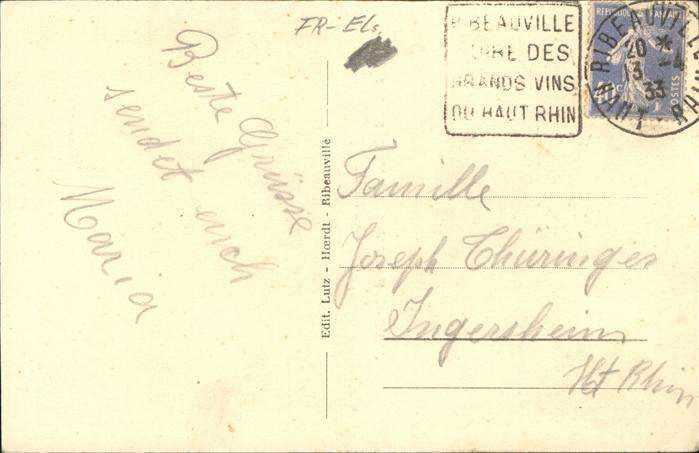 FR-Els
RIBEAUVILLE
FOIRE DES
GRANDS VINS
DU HAUT RHIN
REPUBLIQUE FRANÇAISE
40c
POSTES
RIBEAUVILLE
20 *
13 -4
33
HAUT-RHIN
Beste Grüsse
sendet euch
Maria
Edit. Lutz - Hœrdt - Ribeauvillé
Famille
Joseph Thüringer
Ingersheim
Ht Rhin